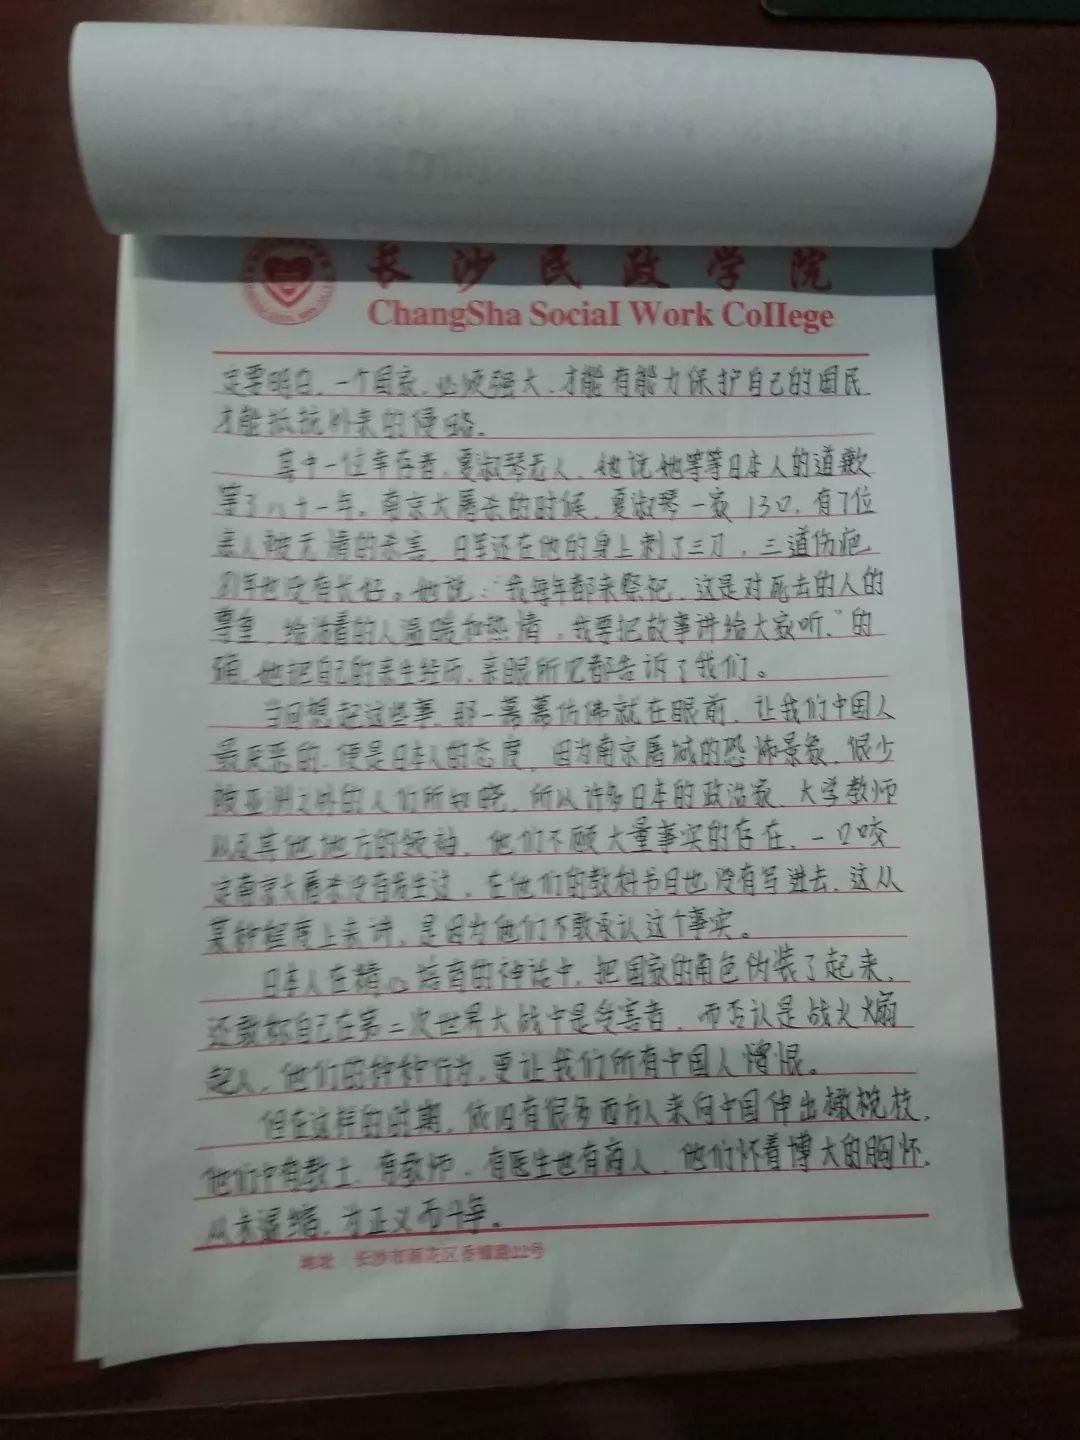 长沙民政学院
ChangSha Social Work College
定要明白，一个国家，必须强大，才能有能力保护自己的国民
才能抵抗外来的侵略。
其中一位幸存者，夏淑琴老人，她说她等等日本人的道歉
等了八十一年。南京大屠杀的时候，夏淑琴一家13口，有7位
亲人被无情的杀害，日军还在他的身上刺了三刀，三道伤疤
81年也没有长好。她说：“我每年都来祭祀，这是对死去的人的
尊重，给活着的人温暖和热情，我要把故事讲给大家听。”的
确，她把自己的亲生经历，亲眼所见都告诉了我们。
当回想起这些事，那一幕幕仿佛就在眼前，让我们中国人
最厌恶的，便是日本人的态度，因为南京屠城的恐怖景象，很少
被亚洲之外的人们所知晓，所以许多日本的政治家、大学教师
以及其他地方的领袖，他们不顾大量事实的存在，一口咬
定南京大屠杀没有发生过，在他们的教科书目也没有写进去，这从
某种程度上来讲，是因为他们不敢承认这个事实。
日本人在精心培育的神话中，把国家的角色伪装了起来，
还敢称自己在第二次世界大战中是受害者，而否认是战火煽
起人，他们的种种行为，更让我们所有中国人憎恨。
但在这样的时期，依旧有很多西方人来向中国伸出橄榄枝，
他们中有教士、有教师、有医生也有商人，他们怀着博大的胸怀，
从未退缩，为正义而斗争。
地址：长沙市雨花区香樟路22号